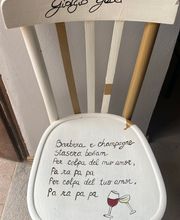 Giorgio Gaber
Barbera e champagne
Stasera beviam
Per colpa del mio amor,
Pa ra pa pa
Per colpa del tuo amor,
Pa ra pa pa